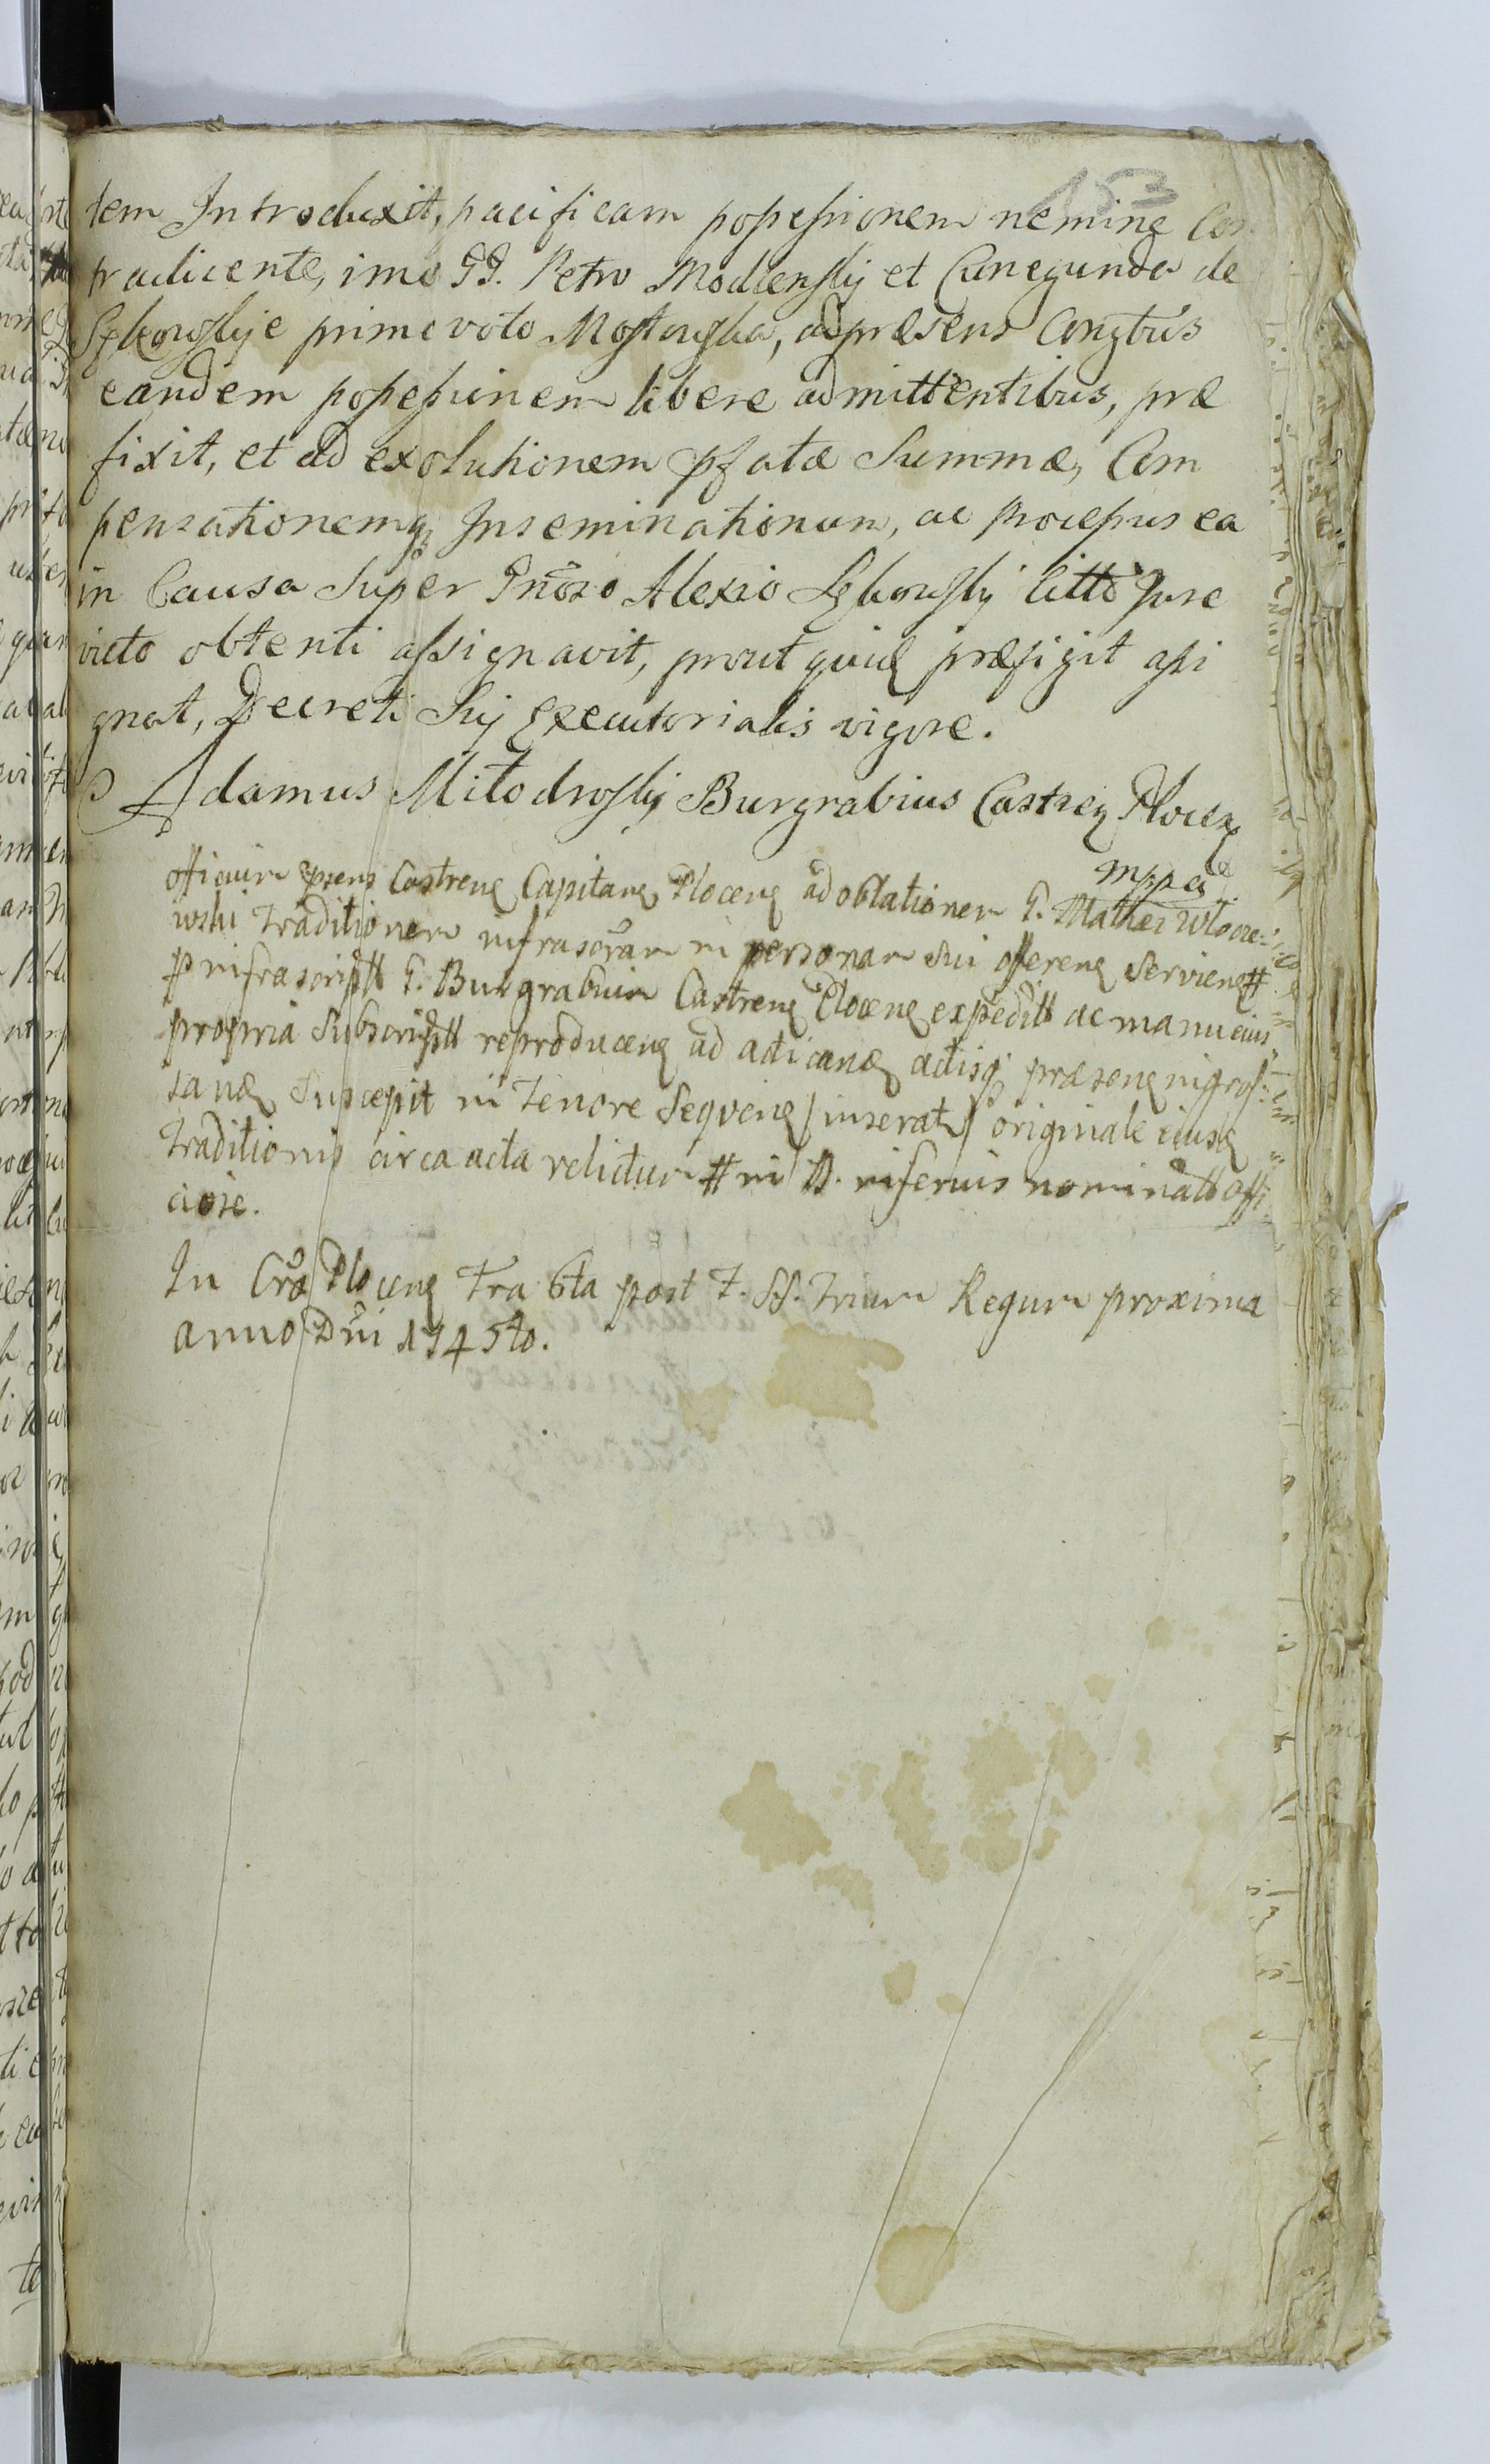 153
tem Introduxit, pacificam possessionem nemine Con
tradicente, imo GG. Petro Modlensky et Cunegunda de
primo voto Mostowska, ad præsens Conjtbus
eandem possessionem libere admittentibus, præ
fixit, et ad exolutionem pfatæ Summæ, Com
pensationemq Inseminationum, ac processus ea
in Causa Super Gnoso Alexio litto Jure
victo obtenti assignavit, prout quidem præfigit assi
gnat, Decreti Sui Executorialis vigore.
Adamus Miłodrosky Burgrabius Castren Plocen
mppa
officium præsens Castrense Capitan Plocen ad oblationem G. Mathei Włocze-
wski Traditionem infrascram in personam Sui offeren Servien #
p infrascriptt G. Burgrabium Castren Plocen expeditt ac manu eius
propria Subscriptt reproducen ad acticand actisq præsen ingros-
sand Suscepit in Tenore Sequen / inserat / originale eiusd
Traditionis circa acta relictum # ni D. inferius nominatt offi-
ciose.
In Cra Plocen Fra 6ta post F. SS. Trium Regum proxima
anno Dni 1745to.